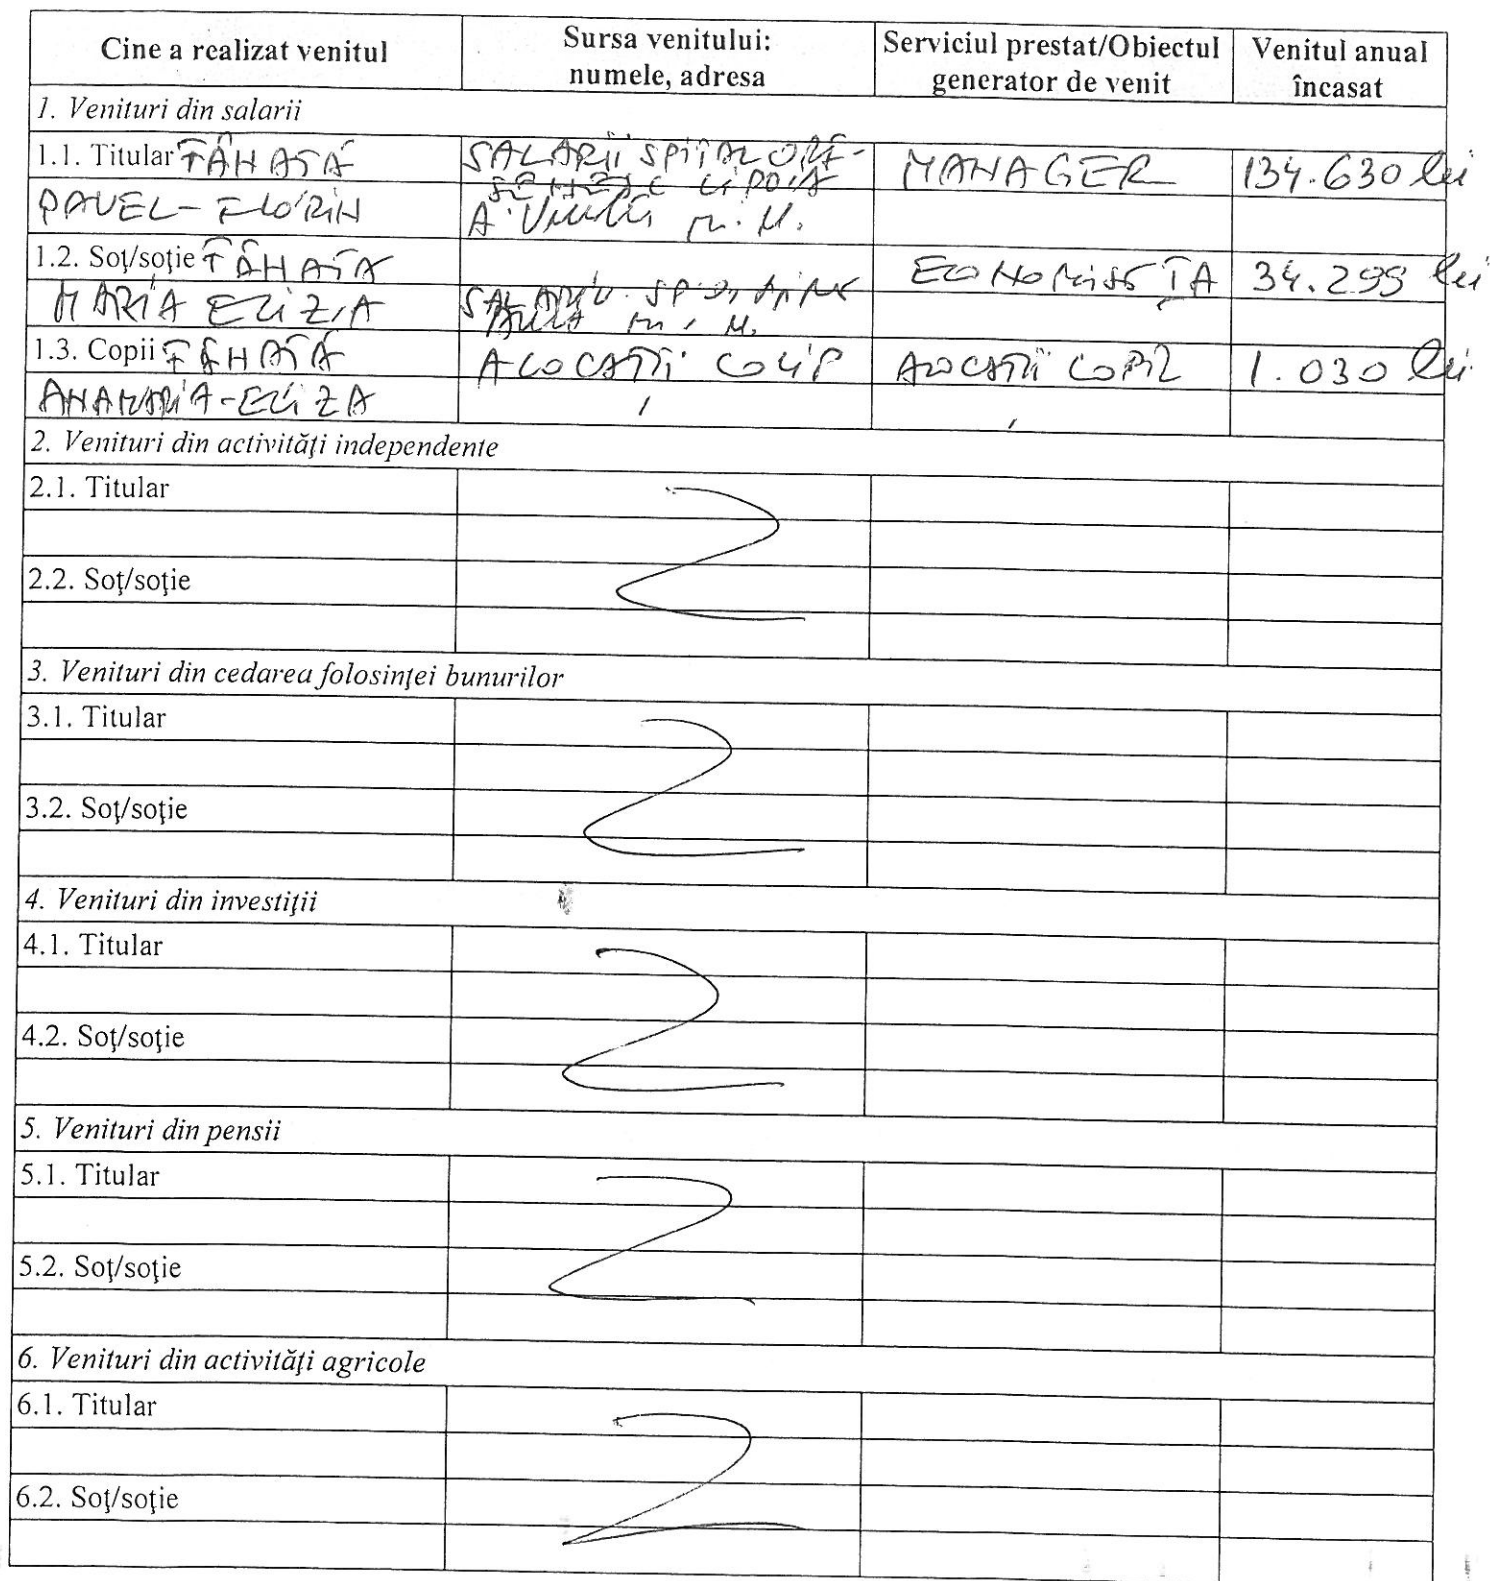 Cine a realizat venitul
Sursa venitului:
numele, adresa
Serviciul prestat/Obiectul
generator de venit
Venitul anual
încasat
1. Venituri din salarii
1.1. Titular
PAVEL-FLORIN
SALARII
MANAGER
134.630 lei
1.2. Soț/soție
MARIA ELIZA
ECONOMISTĂ
34.299 lei
1.3. Copii
ANAMARIA-ELIZA
ALOCAȚII
ALOCAȚII COPIL
1.030 lei
2. Venituri din activități independente
2.1. Titular
2.2. Soț/soție
3. Venituri din cedarea folosinței bunurilor
3.1. Titular
3.2. Soț/soție
4. Venituri din investiții
4.1. Titular
4.2. Soț/soție
5. Venituri din pensii
5.1. Titular
5.2. Soț/soție
6. Venituri din activități agricole
6.1. Titular
6.2. Soț/soție